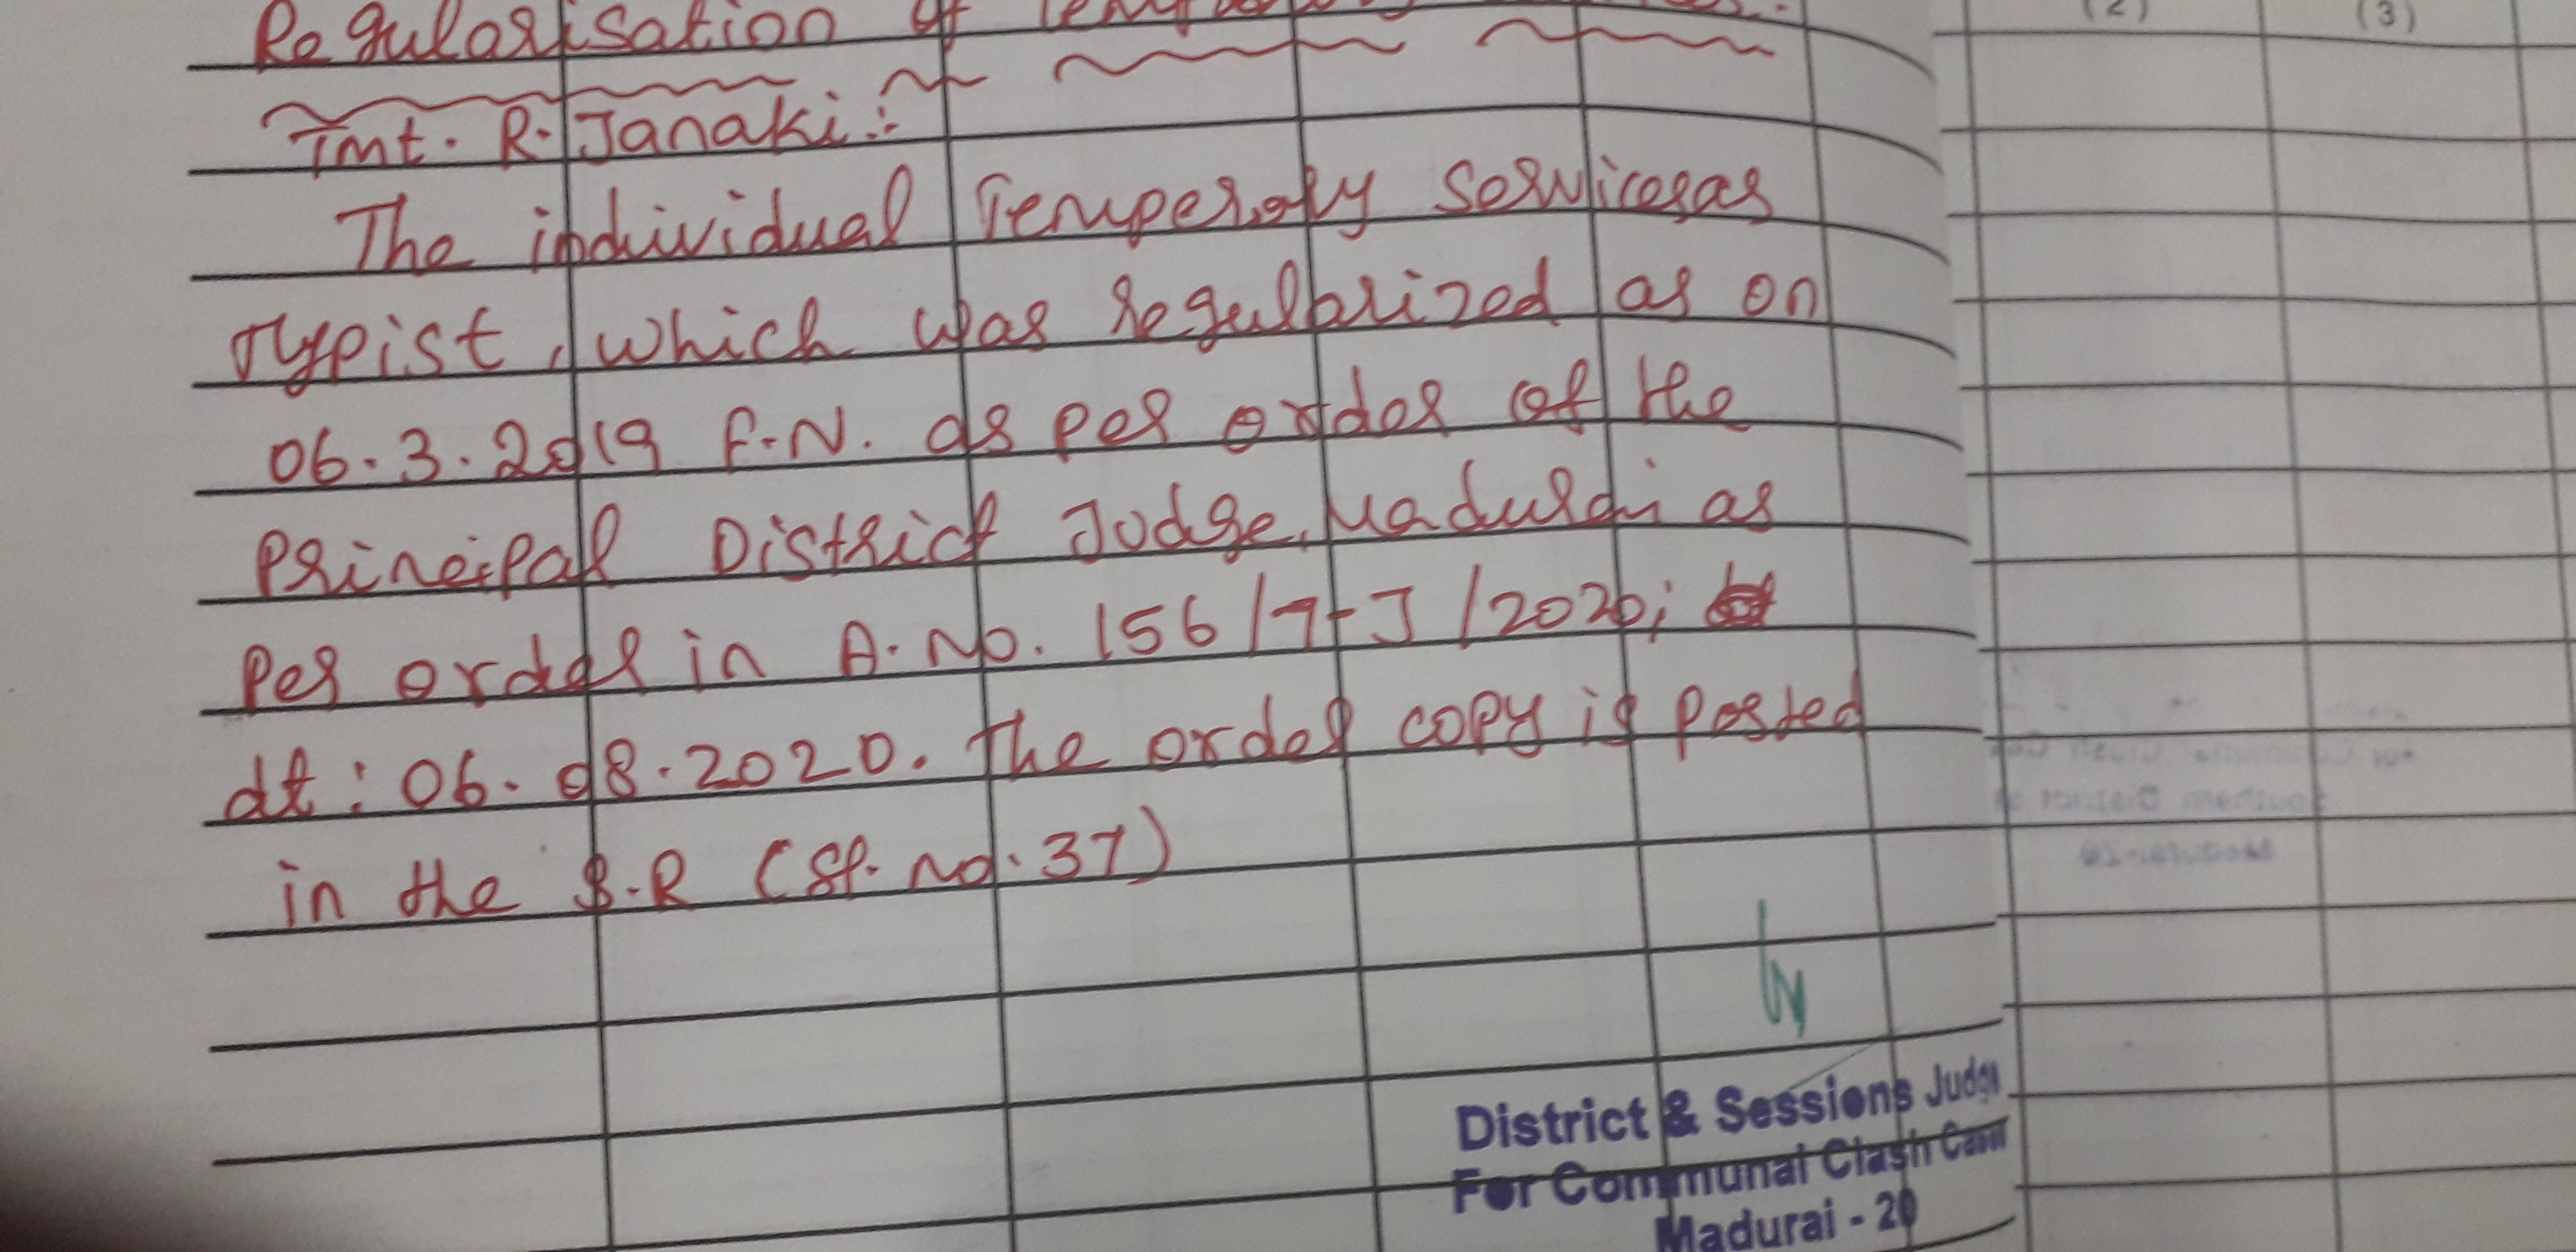 Regularisation of
(2) (3)
Tmt. R. Janaki:-
The individual Temperary Servicesas
Typist, which was regularized as on
06.3.2019 F.N. as per order of the
Principal District Judge, Madurai as
Per order in A.No. 156/7-J/2020;
dt: 06.08.2020. the order copy is posted
in the S.R (Sl. No. 37)
District & Sessions Judge
For Communal Clash Cases
Madurai - 20